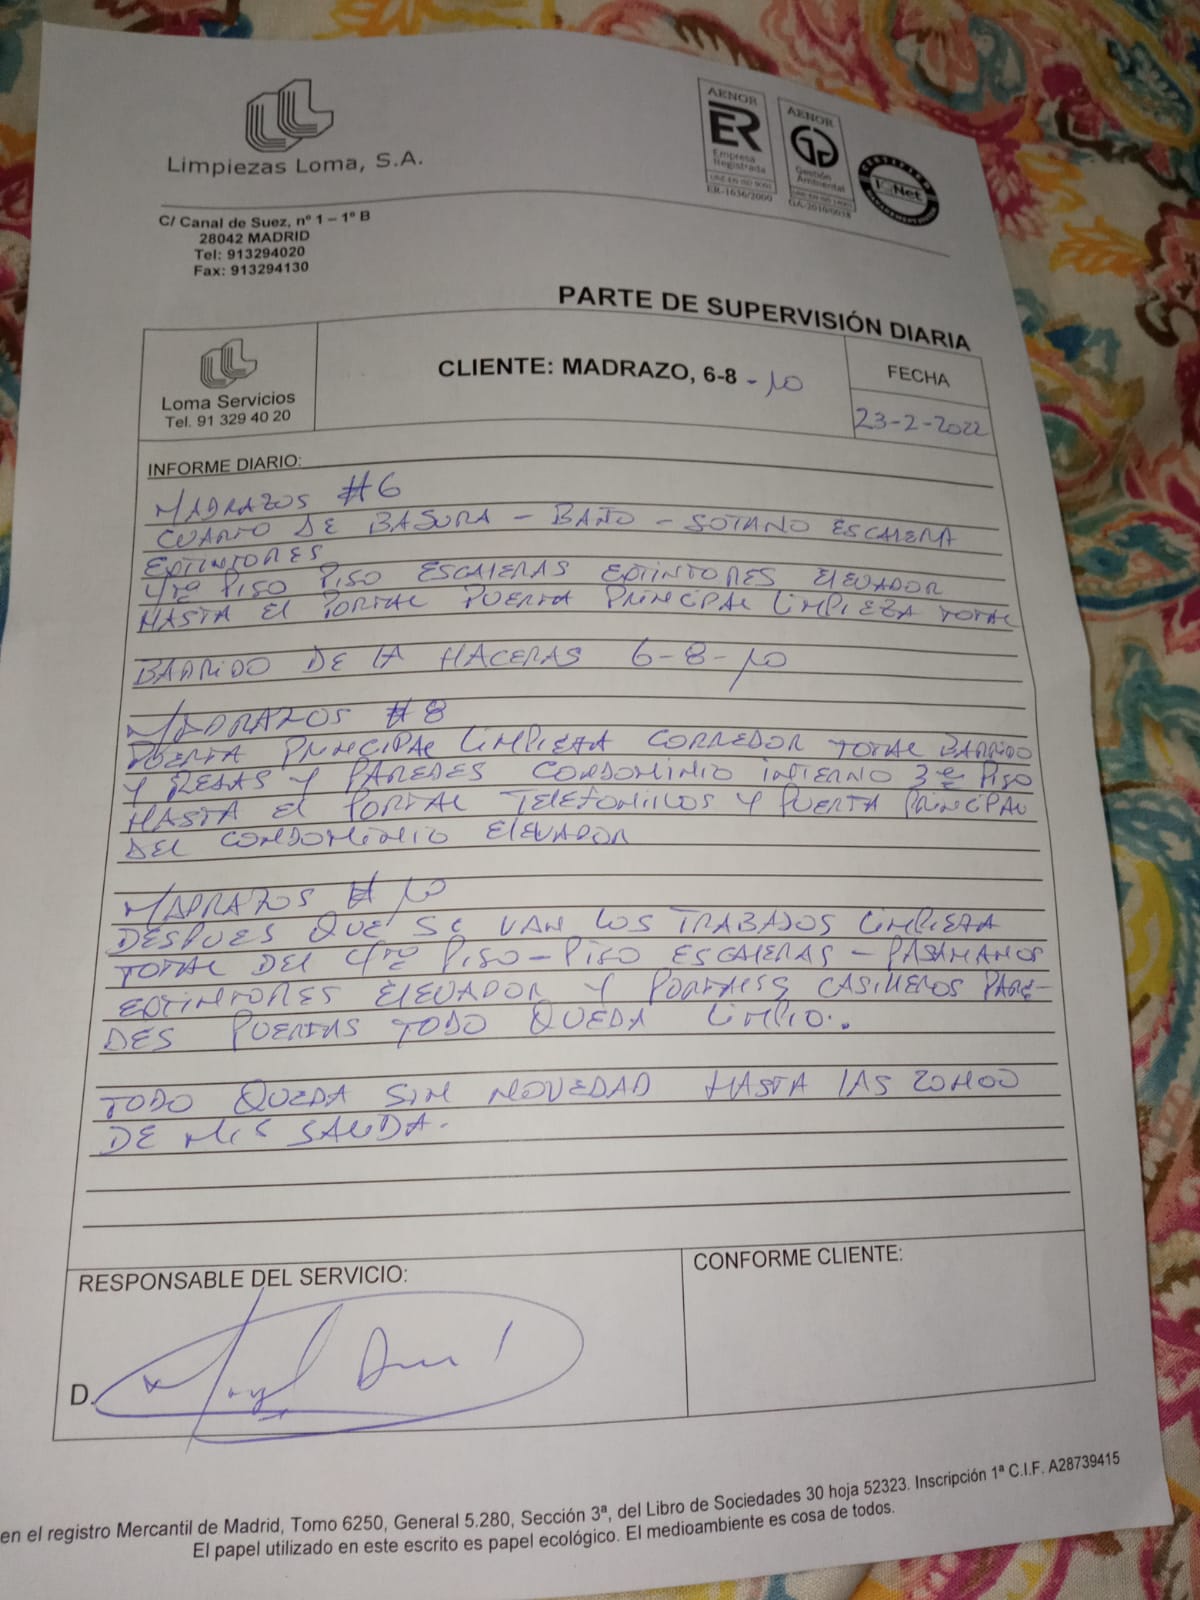 Limpiezas Loma, S.A.
C/ Canal de Suez, nº 1 – 1º B
28042 MADRID
Tel: 913294020
Fax: 913294130
AENOR
ER
Empresa
Registrada
UNE-EN ISO 9001
ER-1636/2000
AENOR
Gestión
Ambiental
UNE-EN ISO 14001
GA-2010/0038
CERTIFIED
IQNet
PARTE DE SUPERVISIÓN DIARIA
Loma Servicios
Tel. 91 329 40 20
CLIENTE: MADRAZO, 6-8 - 10
FECHA
23-2-2022
INFORME DIARIO:
MADRAZOS #6
CUARTO DE BASURA - BAÑO - SOTANO ESCALERA
EXTINTORES
4to PISO PISO ESCALERAS EXTINTORES ELEVADOR
HASTA EL PORTAL PUERTA PRINCIPAL LIMPIEZA TOTAL
BARRIDO DE LA HACERAS 6-8-10
MADRAZOS #8
PUERTA PRINCIPAL LIMPIEZA CORREDOR TOTAL BARRIDO
Y REJAS Y PAREDES CONDOMINIO INTERNO 3er PISO
HASTA EL PORTAL TELEFONILLOS Y PUERTA PRINCIPAL
DEL CONDOMINIO ELEVADOR
MADRAZOS #10
DESPUES QUE SE VAN LOS TRABAJOS LIMPIEZA
TOTAL DEL 4to PISO-PISO ESCALERAS - PASAMANOS
EXTINTORES ELEVADOR Y PORTALES CASILLEROS PARE-
DES PUERTAS TODO QUEDA LIMPIO.
TODO QUEDA SIN NOVEDAD HASTA LAS 20H00
DE MIS SALIDA.
RESPONSABLE DEL SERVICIO:
D.
CONFORME CLIENTE:
en el registro Mercantil de Madrid, Tomo 6250, General 5.280, Sección 3ª, del Libro de Sociedades 30 hoja 52323. Inscripción 1ª C.I.F. A28739415
El papel utilizado en este escrito es papel ecológico. El medioambiente es cosa de todos.